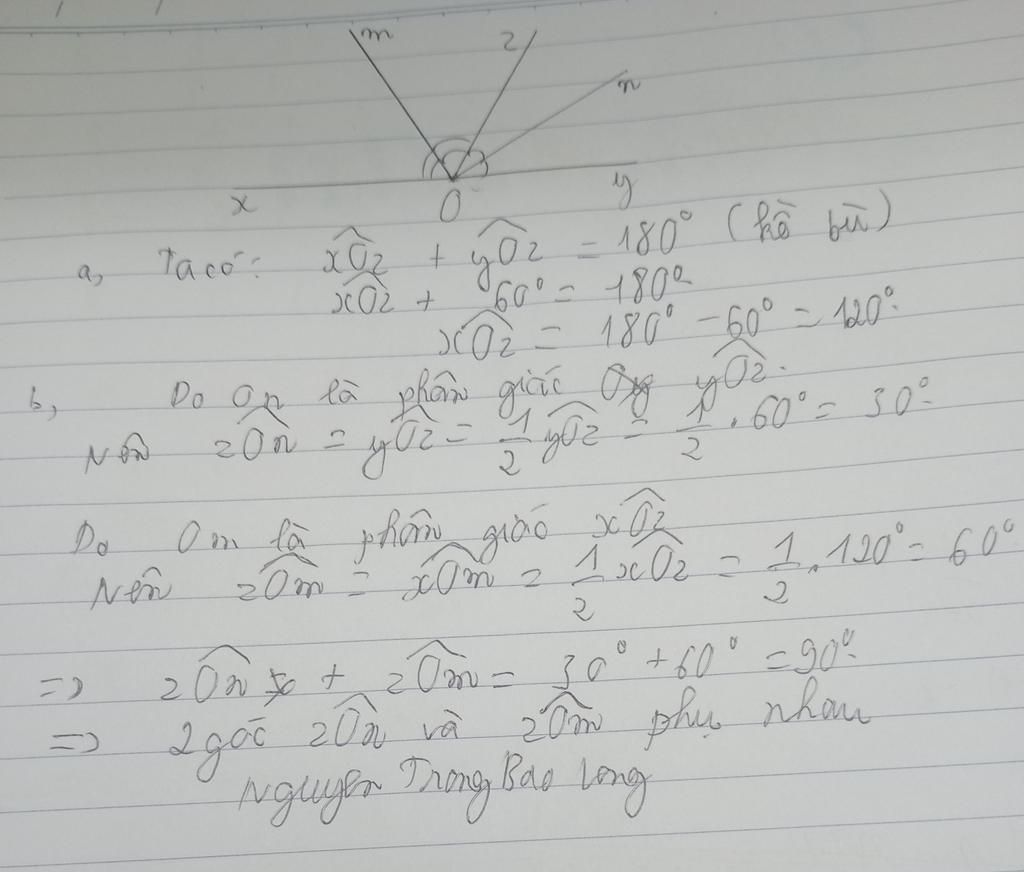 m z n
x O y
a, Ta có: xOz + yOz = 180° (kề bù)
xOz + 60° = 180°
xOz = 180° - 60° = 120°.
b, Do On là phân giác yOz.
Nên zOn = yOz = 1/2 yOz = 1/2 . 60° = 30°.
Do Om là phân giác xOz
Nên zOm = xOm = 1/2 xOz = 1/2 . 120° = 60°
=> zOn + zOm = 30° + 60° = 90°.
=> 2 góc zOn và zOm phụ nhau
Nguyen Trong Bao Long